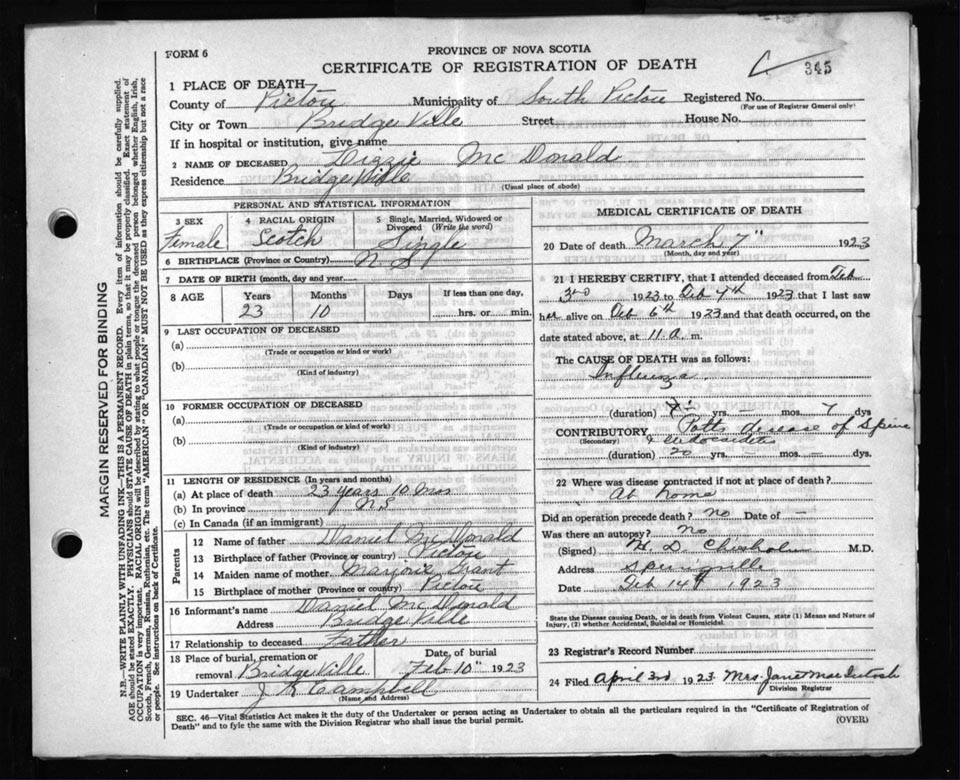 FORM 6
PROVINCE OF NOVA SCOTIA
CERTIFICATE OF REGISTRATION OF DEATH
345
1 PLACE OF DEATH
County of Pictou Municipality of South Pictou Registered No.
(For use of Registrar General only)
City or Town Bridgeville Street House No.
If in hospital or institution, give name
2 NAME OF DECEASED Lizzie McDonald
Residence Bridgeville
(Usual place of abode)
PERSONAL AND STATISTICAL INFORMATION
3 SEX Female
4 RACIAL ORIGIN Scotch
5 Single, Married, Widowed or Divorced (Write the word) Single
6 BIRTHPLACE (Province or Country) N.S
7 DATE OF BIRTH (month, day and year)
8 AGE Years Months Days If less than one day,
23 10 hrs. or min.
9 LAST OCCUPATION OF DECEASED
(a)
(Trade or occupation or kind or work)
(b)
(Kind of industry)
10 FORMER OCCUPATION OF DECEASED
(a)
(Trade or occupation or kind or work)
(b)
(Kind of industry)
11 LENGTH OF RESIDENCE (In years and months)
(a) At place of death 23 years 10 Mos
(b) In province N.S
(c) In Canada (if an immigrant)
Parents
12 Name of father Daniel McDonald
13 Birthplace of father (Province or country) Pictou
14 Maiden name of mother Marjorie Grant
15 Birthplace of mother (Province or country) Pictou
16 Informant's name Daniel McDonald
Address Bridgeville
17 Relationship to deceased Father
18 Place of burial, cremation or removal Bridgeville Date of burial Feb 10" 1923
19 Undertaker J Campbell
(Name and Address)
MEDICAL CERTIFICATE OF DEATH
20 Date of death March 7" 1923
(Month, day and year)
21 I HEREBY CERTIFY, that I attended deceased from Feb
3rd 1923 to Feb 7th 1923 that I last saw
her alive on Feb 6th 1923 and that death occurred, on the
date stated above, at 11 a. m.
The CAUSE OF DEATH was as follows:
Influenza
(duration) yrs. — mos. 7 dys
CONTRIBUTORY Potts disease of Spine
(Secondary) & endocarditis
(duration) 20 yrs. — mos. — dys.
22 Where was disease contracted if not at place of death?
At home
Did an operation precede death? no Date of —
Was there an autopsy? No
(Signed) D Chisholm M.D.
Address Springville
Date Feb 14th 1923
State the Disease causing Death, or in Death from Violent Causes, state (1) Means and Nature of Injury, (2) whether Accidental, Suicidal or Homicidal.
23 Registrar's Record Number
24 Filed April 3rd 1923 Mrs. Janet MacIntosh
Division Registrar
SEC. 46—Vital Statistics Act makes it the duty of the Undertaker or person acting as Undertaker to obtain all the particulars required in the "Certificate of Registration of
Death" and to fyle the same with the Division Registrar who shall issue the burial permit.
(OVER)
MARGIN RESERVED FOR BINDING
N.B.—WRITE PLAINLY WITH UNFADING INK—THIS IS A PERMANENT RECORD. Every item of information should be carefully supplied.
AGE should be stated EXACTLY. PHYSICIANS should STATE CAUSE OF DEATH in plain terms, so that it may be properly classified. Exact statement of
OCCUPATION is very important. RACIAL ORIGIN will be described by stating to what people or tongue the deceased person belonged whether English, Irish,
Scotch, French, German, Russian, Ruthenian, etc. The terms "AMERICAN" OR "CANADIAN" MUST NOT BE USED as they express citizenship but not a race
or people. See instructions on back of Certificate.